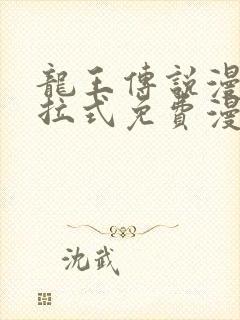 龍王傳說漫
拉式免費漫
沈武